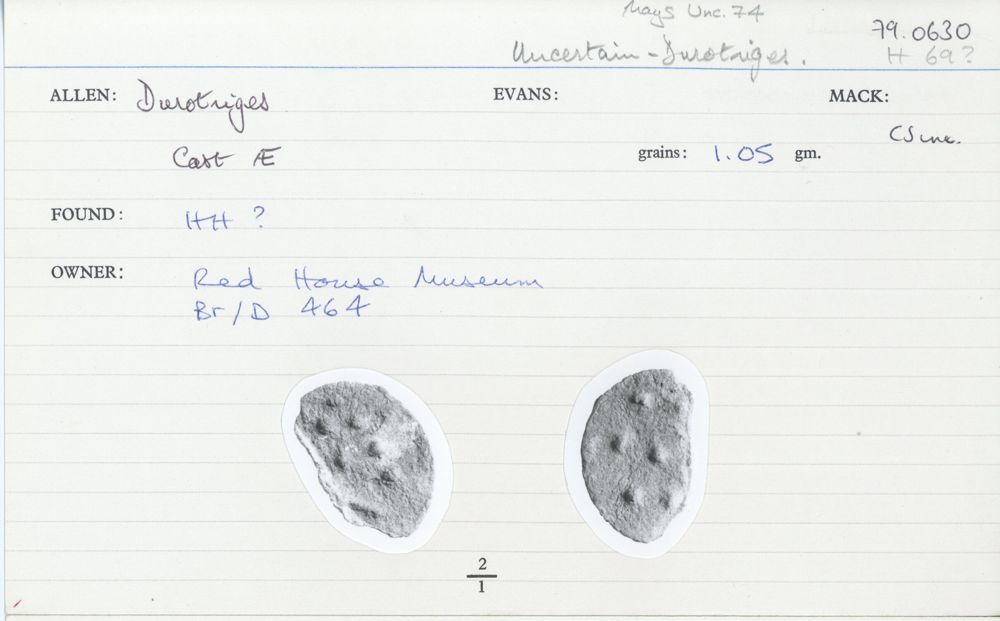 Mays Unc. 74
79.0630
Uncertain - Durotriges.
H 69?
ALLEN: Durotriges EVANS: MACK:
CS unc.
Cast Æ grains: 1.05 gm.
FOUND: HH ?
OWNER: Red House Museum
Br/D 464
2
1